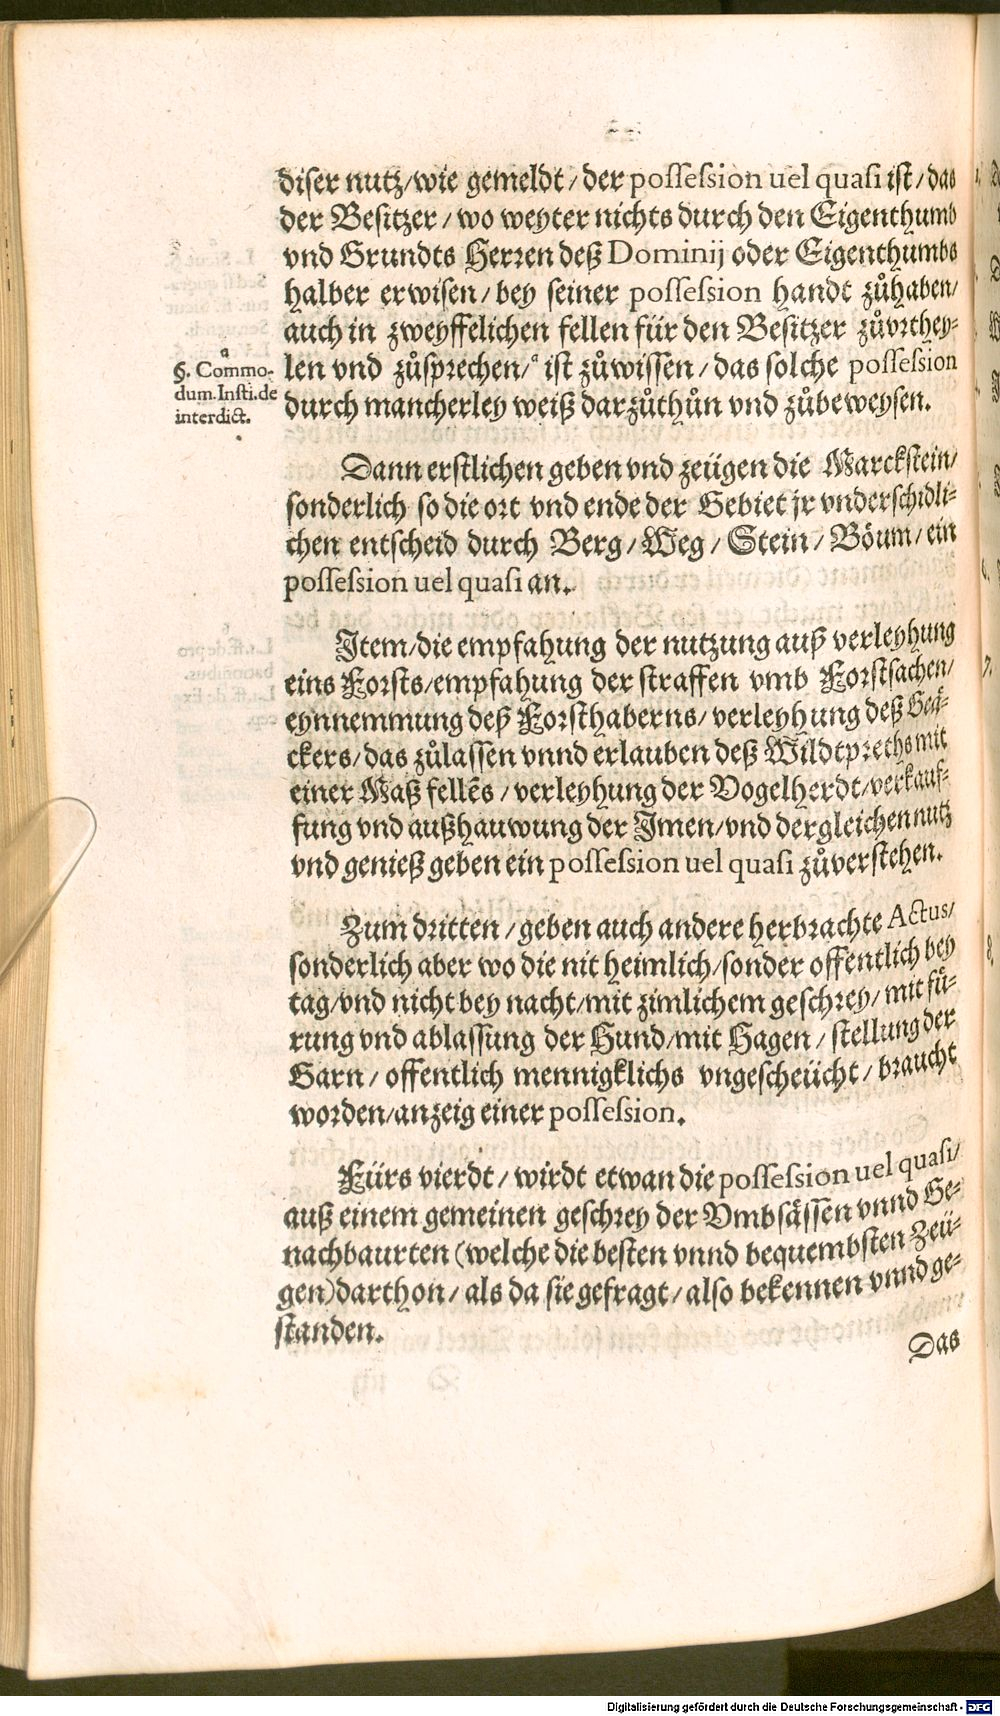 diser nutz/wie gemeldt/der possession uel quasi ist/das
der Besitzer/wo weyter nichts durch den Eigenthumb
vnd Grundts Herren deß Dominij oder Eigenthumbs
halber erwisen/bey seiner possession handt zůhaben/
auch in zweyffelichen fellen für den Besitzer zůvrthey-
len vnd zůsprechen/ᵃ ist zůwissen/das solche possession
durch mancherley weiß darzůthůn vnd zůbeweysen.
a
§. Commo-
dum. Insti. de
interdict.
Dann erstlichen geben vnd zeügen die Marckstein/
sonderlich so die ort vnd ende der Gebiet jr vnderschidli-
chen entscheid durch Berg/Weg/Stein/Böum/ein
possession uel quasi an.
Item/die empfahung der nutzung auß verleyhung
eins Forsts/empfahung der straffen vmb Forstsachen/
eynnemmung deß Forsthaberns/verleyhung deß Geä-
ckers/das zůlassen vnnd erlauben deß Wildtpreths mit
einer Maß fellēs/verleyhung der Vogelherdt/verkauf-
fung vnd außhauwung der Imen/vnd dergleichen nutz
vnd genieß geben ein possession uel quasi zůverstehen.
Zum dritten/geben auch andere herbrachte Actus/
sonderlich aber wo die nit heimlich/sonder offentlich bey
tag/vnd nicht bey nacht/mit zimlichem geschrey/mit fů-
rung vnd ablassung der Hund/mit Hagen/stellung der
Garn/offentlich mennigklichs vngescheücht/braucht
worden/anzeig einer possession.
Fürs vierdt/wirdt etwan die possession uel quasi/
auß einem gemeinen geschrey der Vmbsässen vnnd Ge-
nachbaurten (welche die besten vnnd bequembsten Zeü-
gen) darthon/als da sie gefragt/also bekennen vnnd ge-
standen.
Das
Digitalisierung gefördert durch die Deutsche Forschungsgemeinschaft - DFG